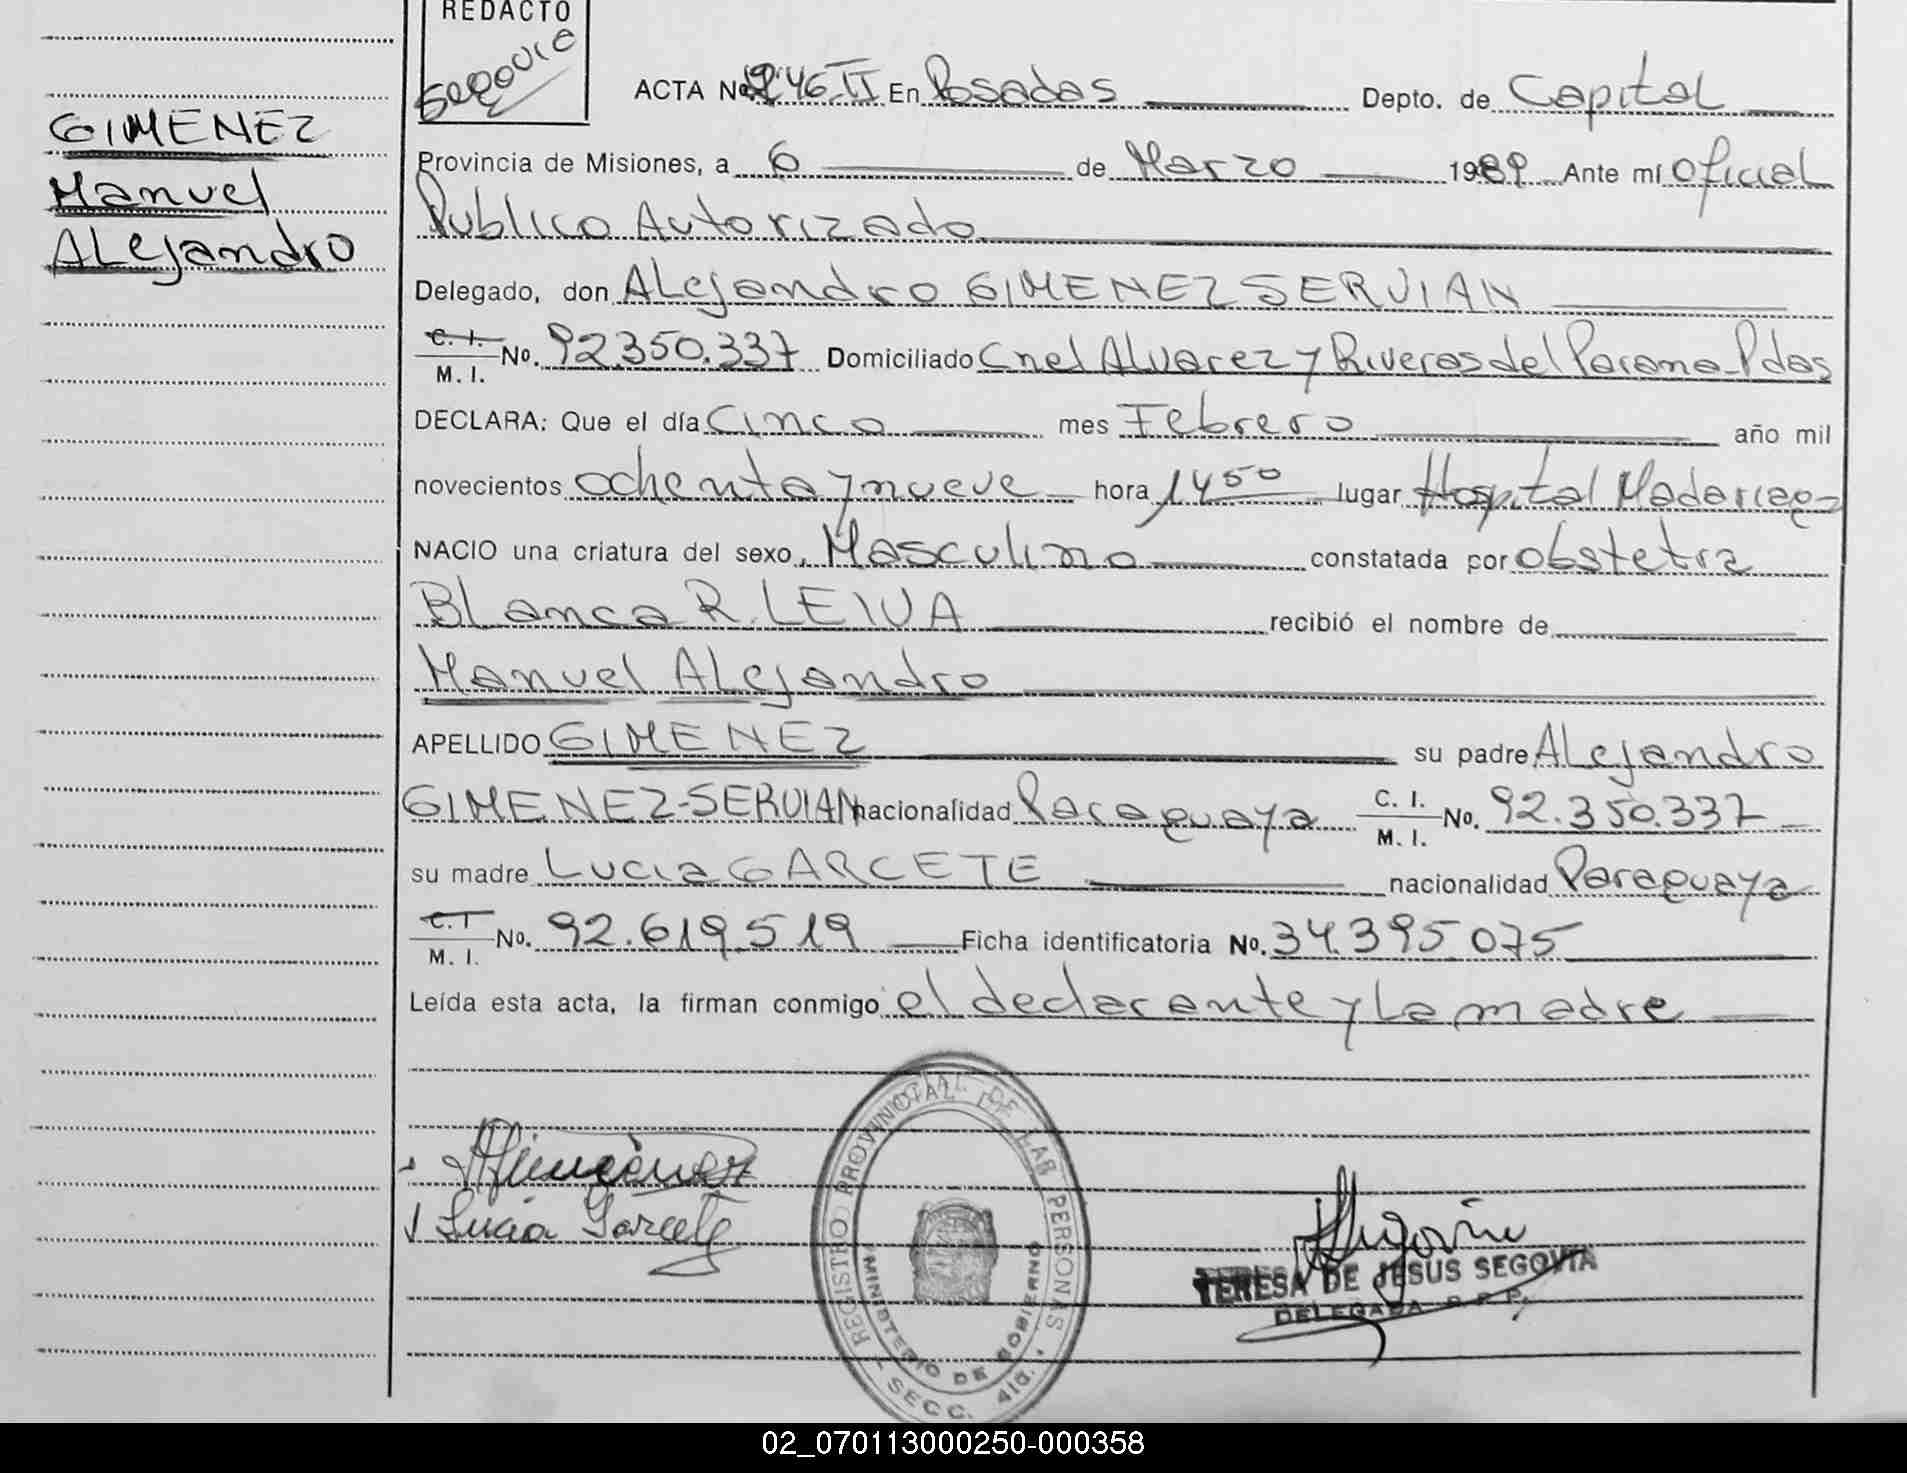 REDACTO
Segovia
GIMENEZ
Manuel
ALejandro
ACTA No. 246 II En Posadas Depto. de Capital
Provincia de Misiones, a 6 de Marzo 1989 Ante mí Oficial
Publico Autorizado
Delegado, don ALejandro GIMENEZ SERVIAN
C. I. M. I. No. 92.350.337 Domiciliado Cnel Alvarez y Riveras del Parana-Pdas
DECLARA: Que el día Cinco mes Febrero año mil
novecientos ochenta y nueve hora 14 50 lugar Hospital Madariaga
NACIO una criatura del sexo, Masculino constatada por obstetra
BLanca R. LEIVA recibió el nombre de
Manuel ALejandro
APELLIDO GIMENEZ su padre ALejandro
GIMENEZ-SERVIAN nacionalidad Paraguaya C. I. M. I. No. 92.350.337
su madre Lucia GARCETE nacionalidad Paraguaya
C. I M. I. No. 92.619.519 Ficha identificatoria No. 34.395.075
Leída esta acta, la firman conmigo el declarante y La madre
Lucia Garcete
REGISTRO PROVINCIAL DE LAS PERSONAS
MINISTERIO DE GOBIERNO
SECC. 4ta.
TERESA DE JESUS SEGOVIA
DELEGADA R. P. P.
02_070113000250-000358